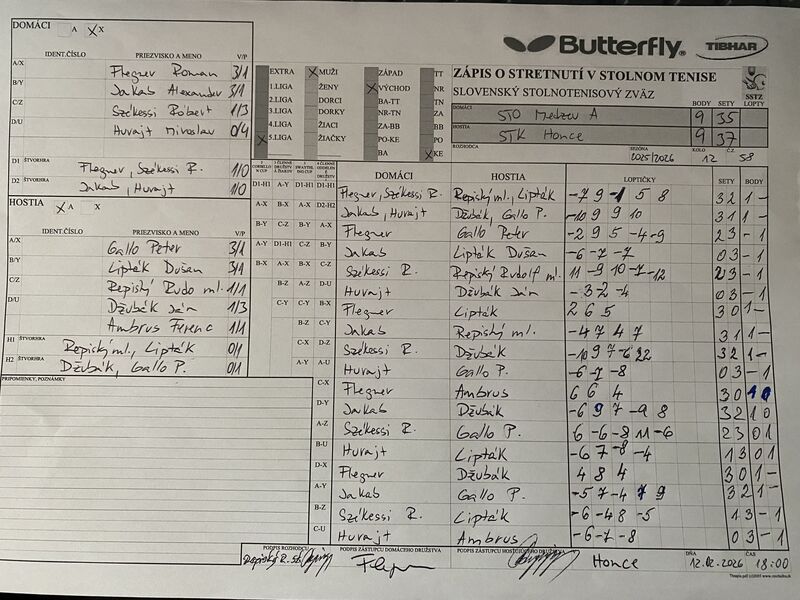 DOMÁCI A X X
IDENT.ČÍSLO PRIEZVISKO A MENO V/P
A/X Flegner Roman 3/1
B/Y Jakab Alexander 3/1
C/Z Székessi Róbert 1/3
D/U Hurajt Miroslav 0/4
D1 ŠTVORHRA Flegner, Székessi R. 1/0
D2 ŠTVORHRA Jakab, Hurajt 1/0
HOSTIA X A X
IDENT.ČÍSLO PRIEZVISKO A MENO V/P
A/X Gallo Peter 3/1
B/Y Lipták Dušan 3/1
C/Z Repiský Rudo ml. 1/1
D/U Džubák Ján 1/3
Ambrus Ferenc 1/1
H1 ŠTVORHRA Repiský ml., Lipták 0/1
H2 ŠTVORHRA Džubák, Gallo P. 0/1
PRIPOMIENKY, POZNÁMKY
EXTRA X MUŽI ZÁPAD TT
1.LIGA ŽENY X VÝCHOD NR
2.LIGA DORCI BA-TT TN
3.LIGA DORKY NR-TN ZA
4.LIGA ŽIACI ZA-BB BB
X 5.LIGA ŽIAČKY PO-KE PO
BA X KE
Butterfly® TIBHAR
ZÁPIS O STRETNUTÍ V STOLNOM TENISE
SLOVENSKÝ STOLNOTENISOVÝ ZVÄZ
SSTZ
BODY SETY LOPTY
DOMÁCI STO Medzev A 9 35
HOSTIA STK Honce 9 37
ROZHODCA SEZÓNA 2025/2026 KOLO 12 Č.Z. 58
DOMÁCI HOSTIA LOPTIČKY SETY BODY
D1-H1 A-Y D1-H1 D1-H1 Flegner, Székessi R. Repiský ml., Lipták -7 9 -1 5 8 3 2 1 -
A-X B-X A-X D2-H2 Jakab, Hurajt Džubák, Gallo P. -10 9 9 10 3 1 1 -
B-Y C-Z B-Y A-X Flegner Gallo Peter -2 9 5 -4 -9 2 3 - 1
A-Y D1-H1 C-Z B-Y Jakab Lipták Dušan -6 -7 -7 0 3 - 1
B-X A-X B-X C-Z Székessi R. Repiský Rudolf ml. 11 -9 10 -7 -12 2 3 - 1
B-Z A-Z D-U Hurajt Džubák Ján -3 -2 -4 0 3 - 1
C-Y C-Y B-X Flegner Lipták 2 6 5 3 0 1 -
B-Z C-Y Jakab Repiský ml. -4 7 4 7 3 1 1 -
C-X D-Z Székessi R. Džubák -10 9 7 -6 22 3 2 1 -
A-Y A-U Hurajt Gallo P. -6 -7 -8 0 3 - 1
C-X Flegner Ambrus 6 6 4 3 0 1 0
D-Y Jakab Džubák -6 9 7 -9 8 3 2 1 0
A-Z Székessi R. Gallo P. 6 -6 -8 11 -6 2 3 0 1
B-U Hurajt Lipták -6 7 -8 -4 1 3 0 1
D-X Flegner Džubák 4 8 4 3 0 1 -
A-Y Jakab Gallo P. -5 7 -4 7 9 3 2 1 -
B-Z Székessi R. Lipták -6 -4 8 -5 1 3 - 1
C-U Hurajt Ambrus -6 -7 -8 0 3 - 1
PODPIS ROZHODCU Repiský R. st. PODPIS ZÁSTUPCU DOMÁCEHO DRUŽSTVA PODPIS ZÁSTUPCU HOSŤUJÚCEHO DRUŽSTVA Honce DŇA 12.02.2026 ČAS 18:00